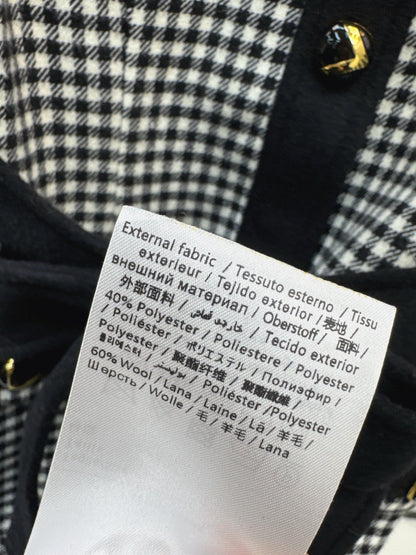 External fabric / Tessuto esterno / Tissu
exterieur / Tejido exterior / 表地 /
внешний материал / Oberstoff / 面料 /
外部面料 / خارجة قماش / Tecido exterior
40% Polyester / Poliestere / Polyester
/ Poliéster / ポリエステル / Полиэфир /
Polyester / 聚酯纤维 / Poliéster /Polyester
폴리에스터 / بوليستر / 聚酯纖維 /
60% Wool / Lana / Laine / Lã / 羊毛 /
Шерсть / Wolle / 毛 / 羊毛 / Lana